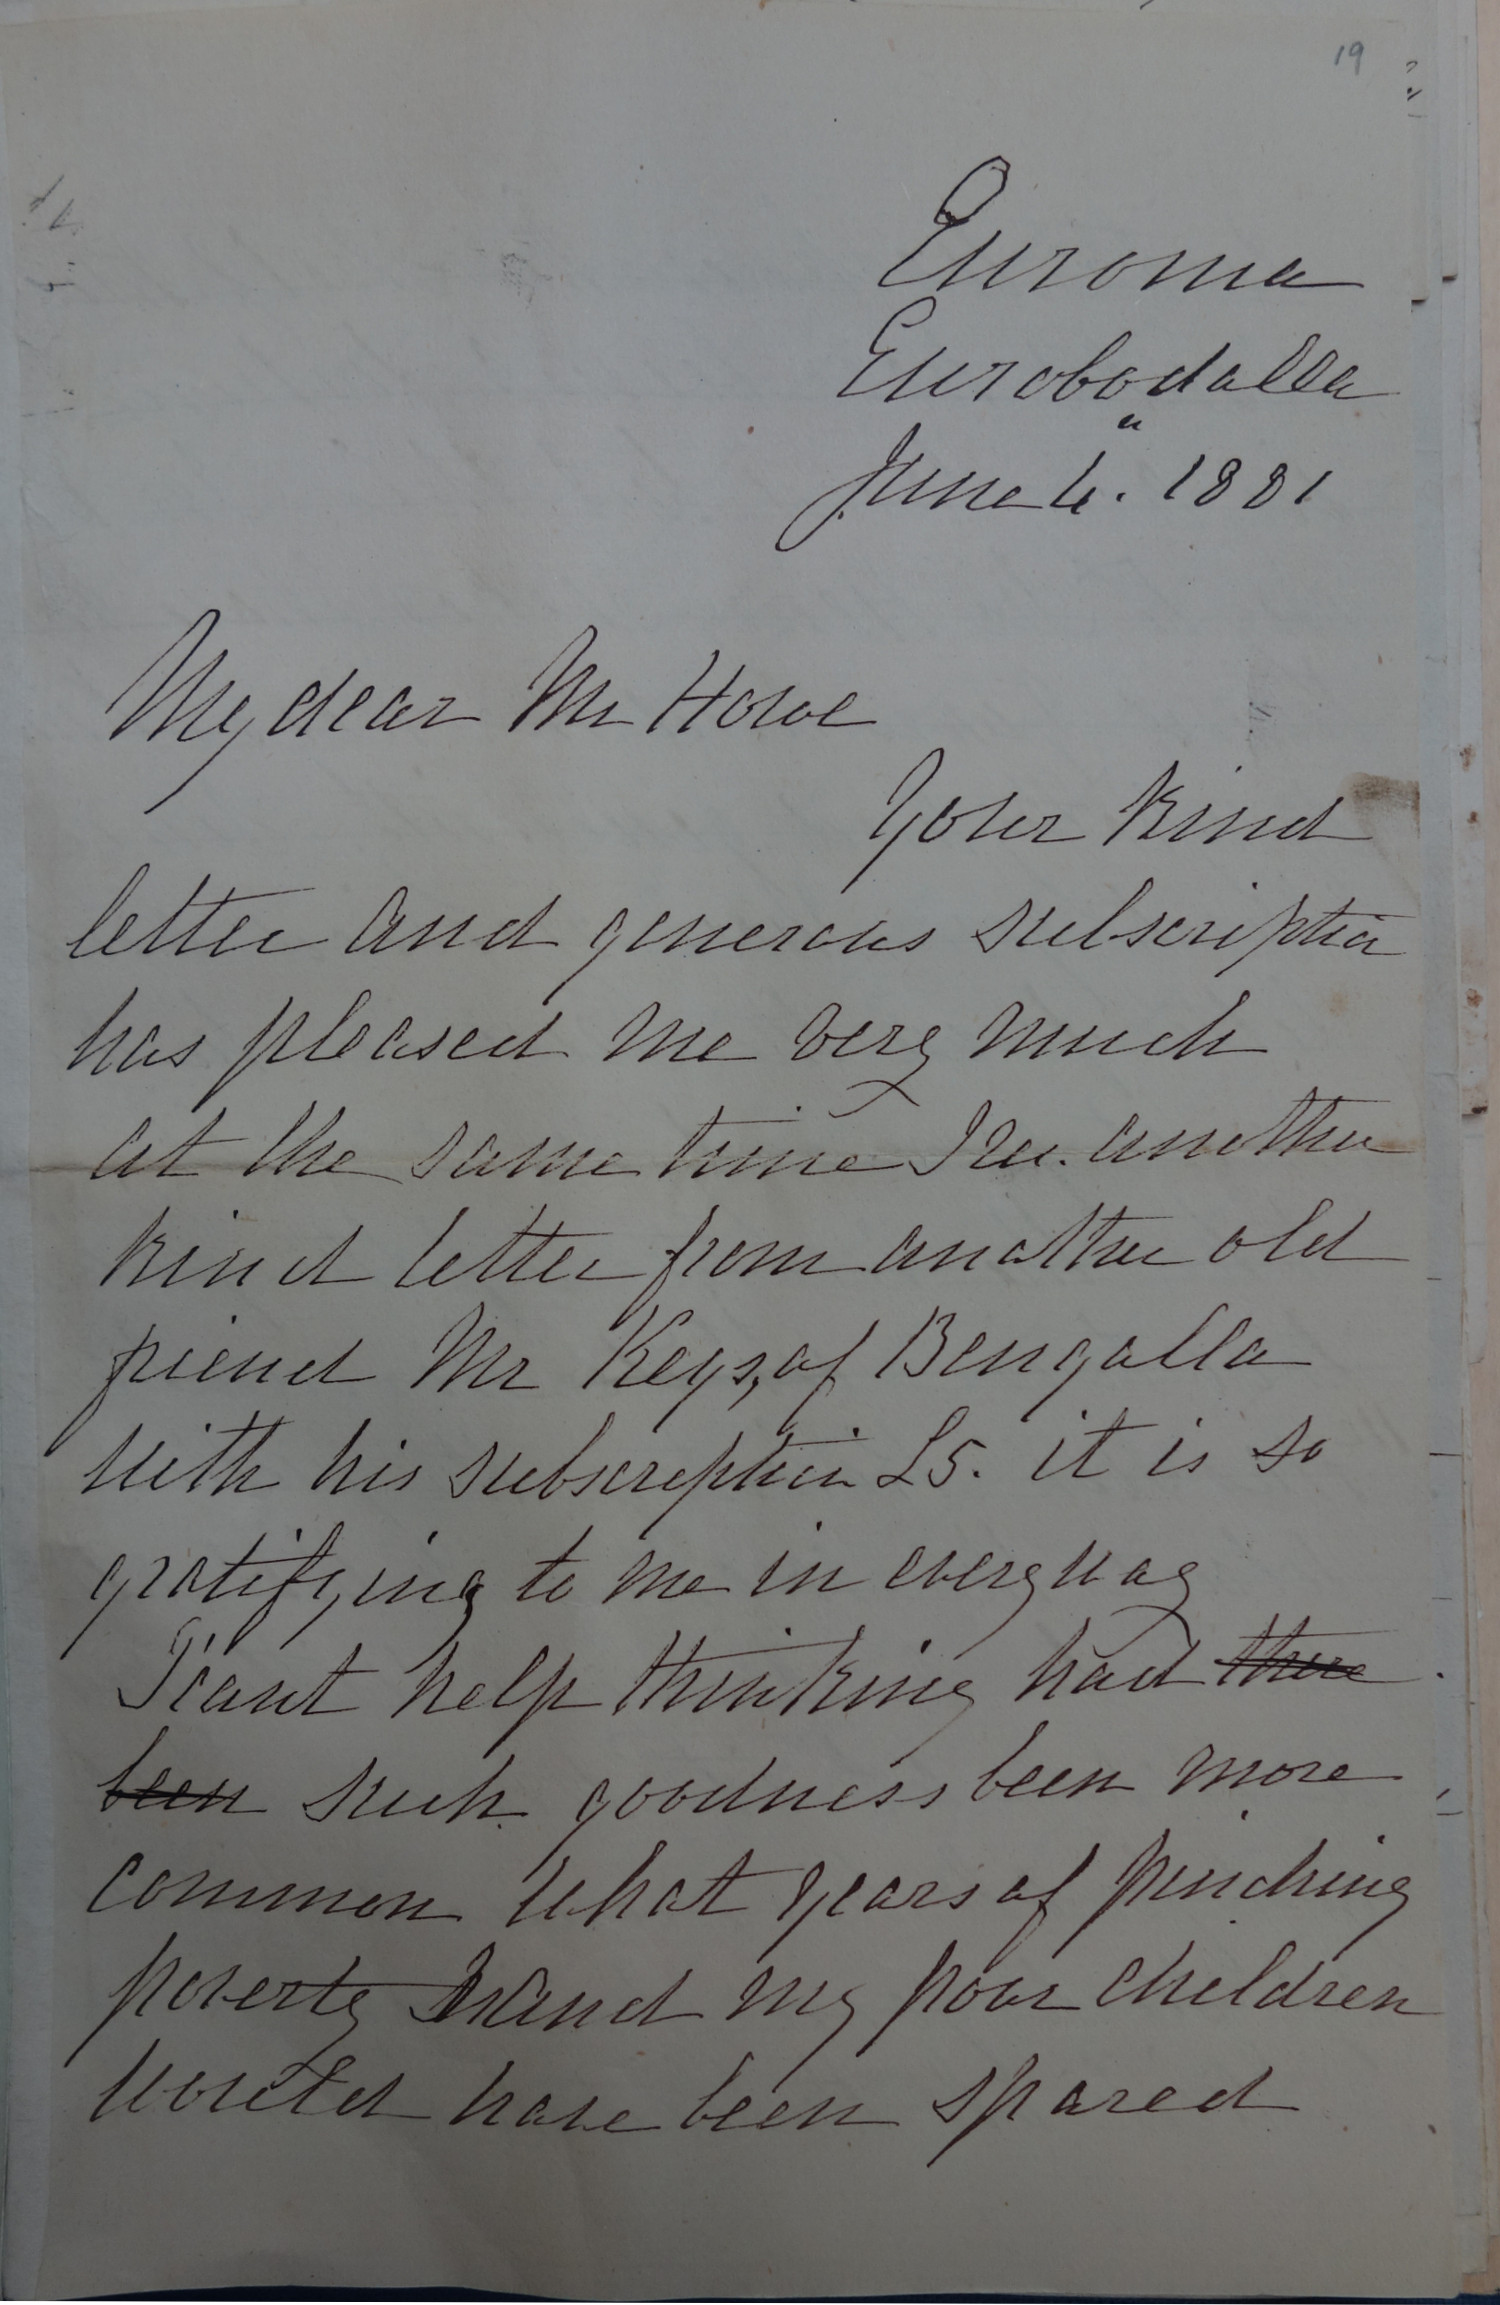 19
Euroma
Eurobodalla
June 4". 1881
My dear Mr Howe
Your kind
letter and generous subscription
has pleased me very much
at the same time I re. another
kind letter from another old
friend Mr Keys, of Bengalla
with his subscription £5. it is so
gratifying to me in every way
I cant help thinking had there
been such goodness been more
common what years of pinching
poverty I and my poor children
would have been spared